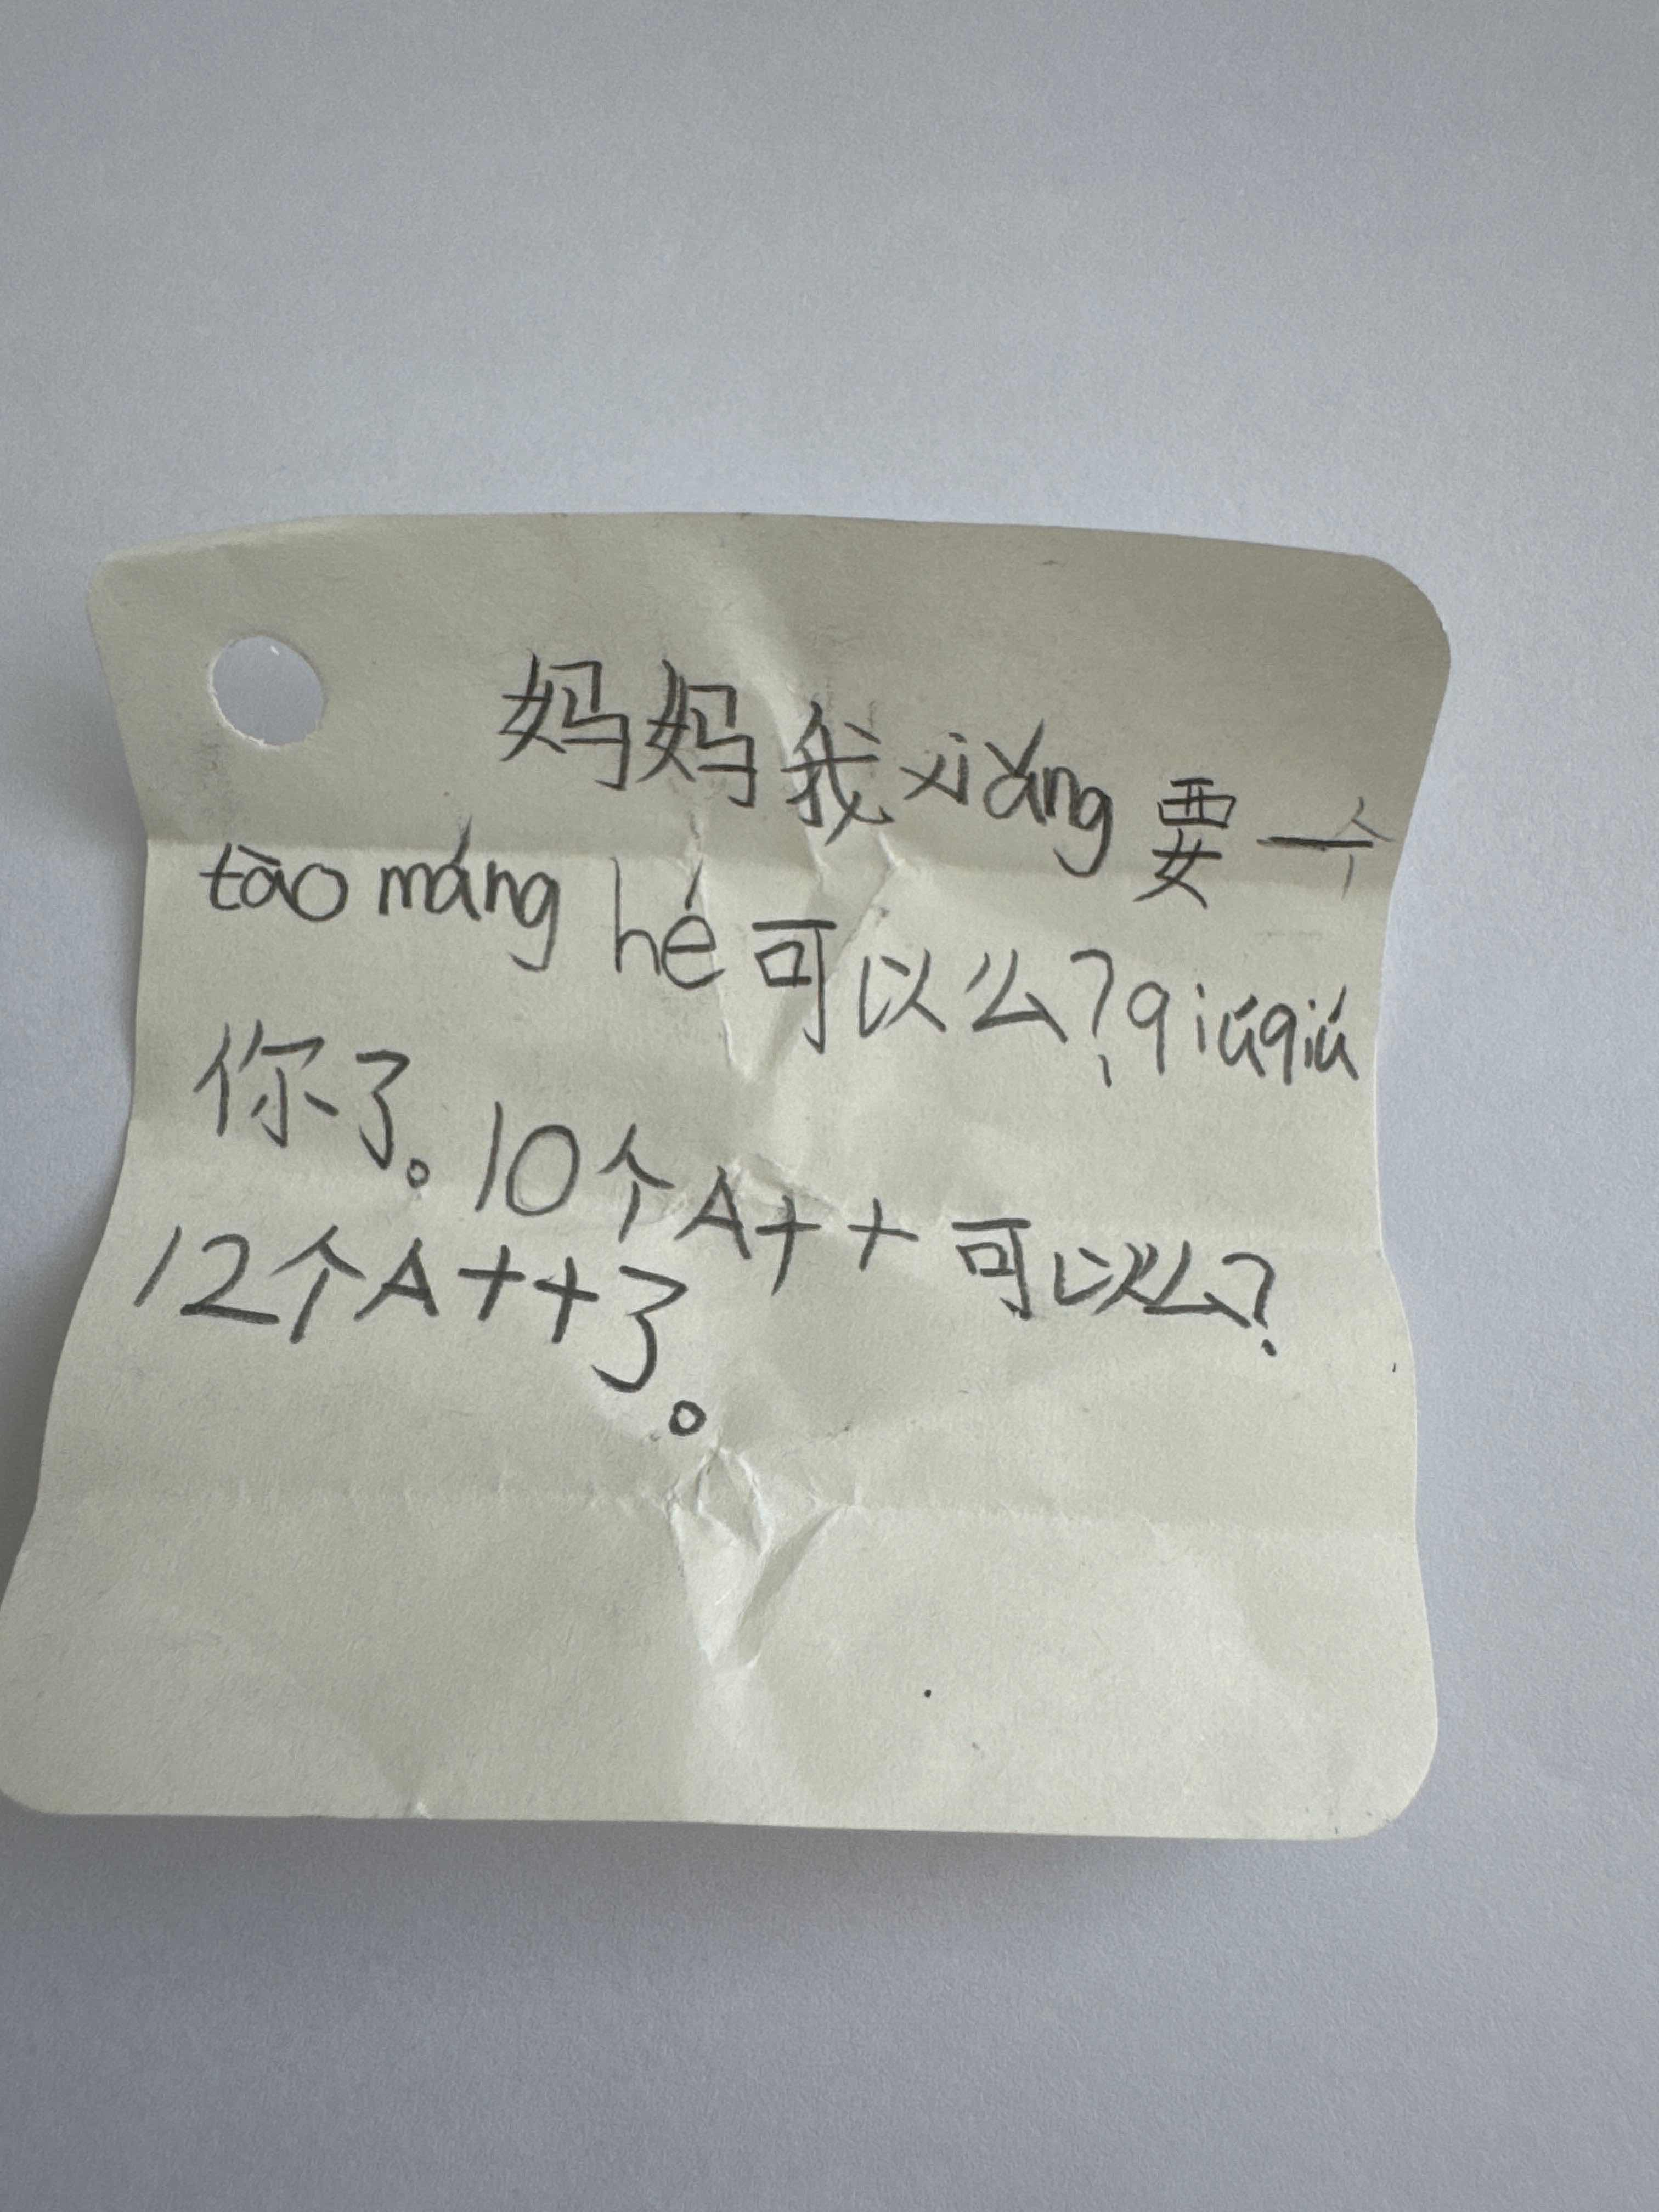 妈妈我xiǎng要一个
tào máng hé可以么?qiúqiú
你了。10个A++可以么?
12个A++了。